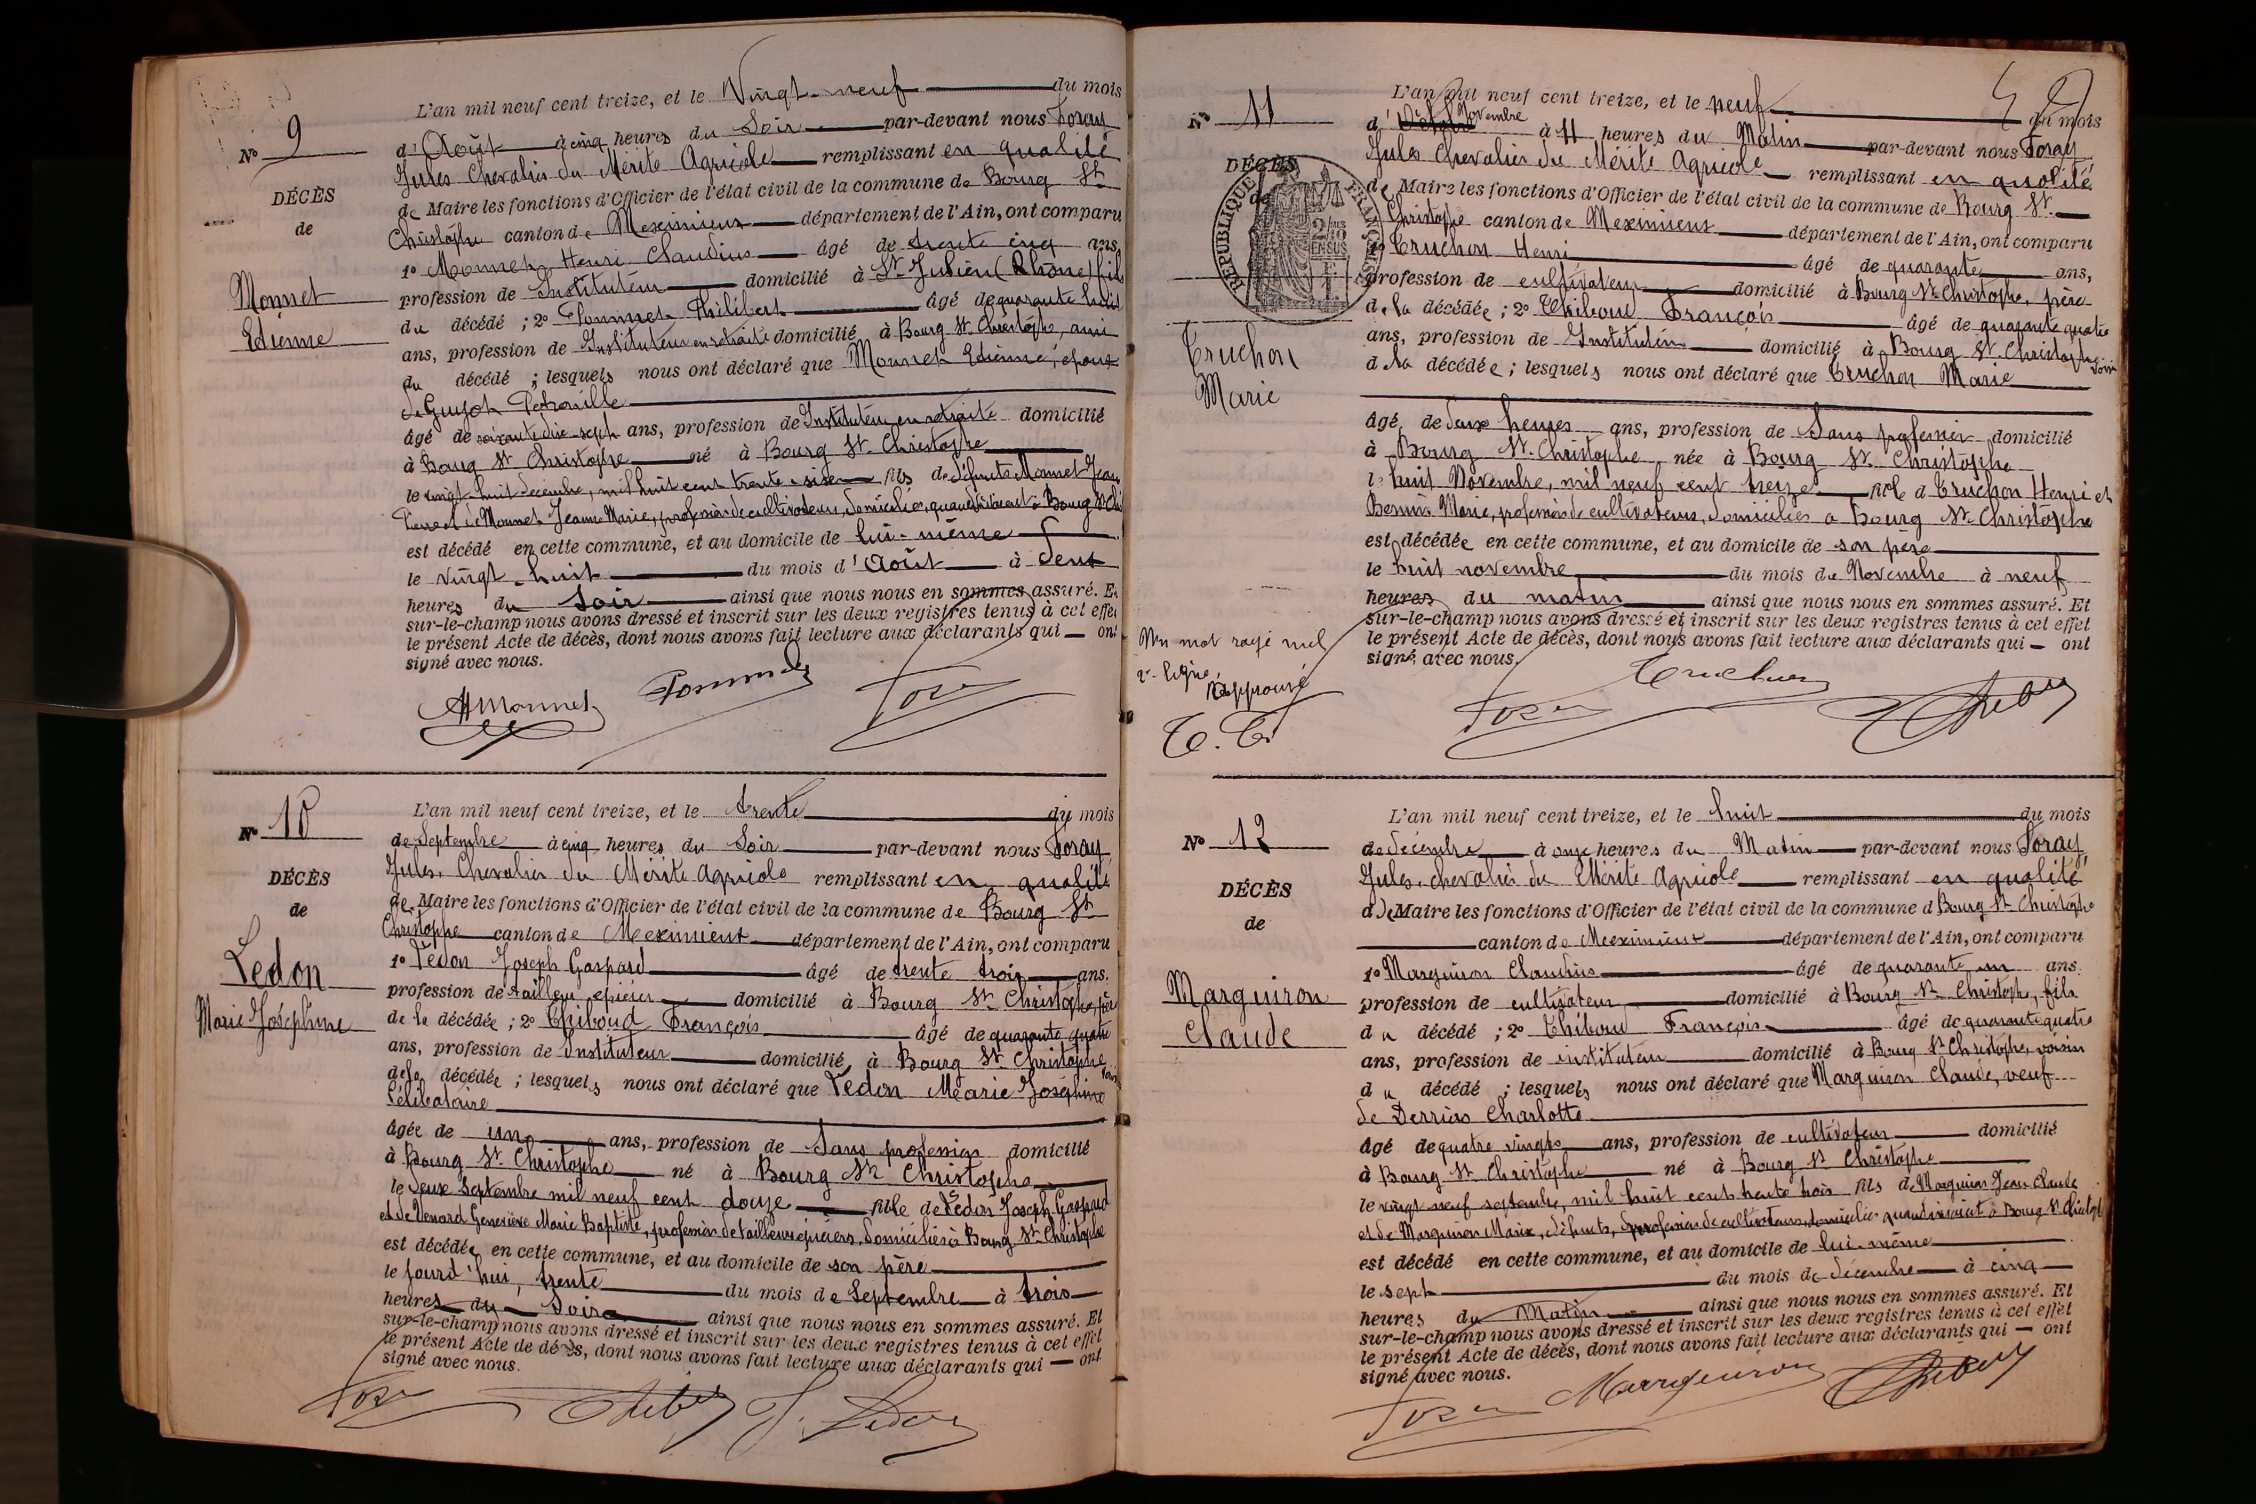 N° 9
DÉCÈS
de
Monnet
Etienne
L'an mil neuf cent treize, et le Vingt-neuf du mois
d'Août à cinq heures du Soir par-devant nous Foray
Jules Chevalier du Mérite Agricole remplissant en qualité
de Maire les fonctions d'Officier de l'état civil de la commune de Bourg St
Christophe canton de Meximieux département de l'Ain, ont comparu
1° Monnet Henri Claudius âgé de trente cinq ans,
profession de Instituteur domicilié à St Julien (Rhône) fils
du décédé ; 2° Pommet Philibert âgé de quarante huit
ans, profession de Instituteur en retraite domicilié à Bourg St Christophe, ami
du décédé ; lesquels nous ont déclaré que Monnet Etienne, époux
de Guyot Pétronille
âgé de soixante dix-sept ans, profession de Instituteur en retraite domicilié
à Bourg St Christophe né à Bourg St Christophe
le vingt-huit décembre, mil huit cent trente-six fils de défunts Monnet Jean
Pierre et de Monnet Jeanne Marie, profession de cultivateurs, domiciliés, quand vivaient à Bourg St Ch
est décédé en cette commune, et au domicile de lui-même
le vingt-huit du mois d'Août à deux
heures du Soir ainsi que nous nous en sommes assuré. Et
sur-le-champ nous avons dressé et inscrit sur les deux registres tenus à cet effet
le présent Acte de décès, dont nous avons fait lecture aux déclarants qui — ont
signé avec nous.
Hmonnet Pommet Foray
N° 10
DÉCÈS
de
Ledon
Marie Joséphine
L'an mil neuf cent treize, et le trente du mois
de Septembre à cinq heures du Soir par-devant nous Foray
Jules, Chevalier du Mérite Agricole remplissant en qualité
de Maire les fonctions d'Officier de l'état civil de la commune de Bourg St
Christophe canton de Meximieux département de l'Ain, ont comparu
1° Ledon Joseph Gaspard âgé de trente trois ans.
profession de tailleur épicier domicilié à Bourg St Christophe, père
de la décédée ; 2° Thiboud François âgé de quarante quatre
ans, profession de Instituteur domicilié à Bourg St Christophe
de la décédée ; lesquels nous ont déclaré que Ledon Marie Joséphine
Célibataire
âgée de un ans, profession de Sans profession domicilié
à Bourg St Christophe né à Bourg St Christophe
le deux septembre mil neuf cent douze fille de Ledon Joseph Gaspard
et de Venard Geneviève Marie Baptiste, profession de tailleurs épiciers, domiciliés à Bourg St Christophe
est décédée en cette commune, et au domicile de son père
le jourd'hui, trente du mois de Septembre à trois
heures du Soir ainsi que nous nous en sommes assuré. Et
sur-le-champ nous avons dressé et inscrit sur les deux registres tenus à cet effet
le présent Acte de décès, dont nous avons fait lecture aux déclarants qui — ont
signé avec nous.
Foray Thiboud J. Ledon
N° 11
DÉCÈS
de
RÉPUBLIQUE FRANÇAISE
Truchon
Marie
L'an mil neuf cent treize, et le neuf du mois
d'Octobre Novembre à 11 heures du Matin par-devant nous Foray
Jules Chevalier du Mérite Agricole remplissant en qualité
de Maire les fonctions d'Officier de l'état civil de la commune de Bourg St
Christophe canton de Meximieux département de l'Ain, ont comparu
1° Truchon Henri âgé de quarante ans,
profession de cultivateur domicilié à Bourg St Christophe, père
de la décédée ; 2° Thiboud François âgé de quarante quatre
ans, profession de Instituteur domicilié à Bourg St Christophe voisin
de la décédée ; lesquels nous ont déclaré que Truchon Marie
âgé de deux heures ans, profession de Sans profession domicilié
à Bourg St Christophe née à Bourg St Christophe
le huit Novembre, mil neuf cent treize fille d Truchon Henri et
Marie, profession de cultivateurs, domiciliés à Bourg St Christophe
est décédée en cette commune, et au domicile de son père
le huit novembre du mois de Novembre à neuf
heures du matin ainsi que nous nous en sommes assuré. Et
sur-le-champ nous avons dressé et inscrit sur les deux registres tenus à cet effet
le présent Acte de décès, dont nous avons fait lecture aux déclarants qui — ont
signé avec nous.
Un mot rayé nul
2e ligne
Approuvé
Truchon Foray Thiboud
N° 12
DÉCÈS
de
Marguiron
Claude
L'an mil neuf cent treize, et le huit du mois
de décembre à onze heures du Matin par-devant nous Foray
Jules, chevalier du Mérite Agricole remplissant en qualité
d de Maire les fonctions d'Officier de l'état civil de la commune d Bourg St Christophe
canton de Meximieux département de l'Ain, ont comparu
1° Marguiron Claudius âgé de quarante un ans.
profession de cultivateur domicilié à Bourg St Christophe, fils
du décédé ; 2° Thiboud François âgé de quarante quatre
ans, profession de instituteur domicilié à Bourg St Christophe, voisin
du décédé ; lesquels nous ont déclaré que Marguiron Claude, veuf
de Derrias Charlotte
âgé de quatre vingts ans, profession de cultivateur domicilié
à Bourg St Christophe né à Bourg St Christophe
le vingt neuf septembre, mil huit cent trente trois fils de Marguiron Jean Claude
et de Marguiron Marie, défunts, profession de cultivateurs, domiciliés quand vivaient à Bourg St Christophe
est décédé en cette commune, et au domicile de lui-même
le sept du mois de décembre à cinq
heures du Matin ainsi que nous nous en sommes assuré. Et
sur-le-champ nous avons dressé et inscrit sur les deux registres tenus à cet effet
le présent Acte de décès, dont nous avons fait lecture aux déclarants qui — ont
signé avec nous.
Foray Marguiron Thiboud